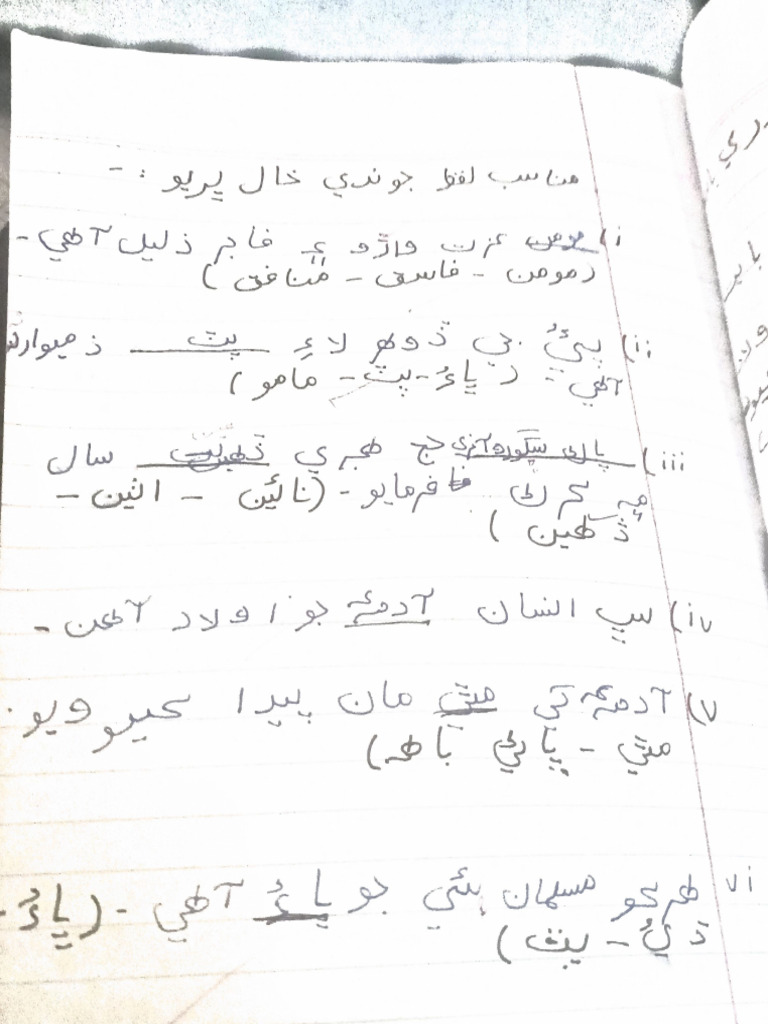 مناسب لفظ جوندي خال ڀريو :-
i) مومن عزت وارو ۽ فاجر ذليل آهي -
(مومن - فاسق - منافق)
ii) پيءُ جي ڏوهه لاءِ پٽ ذميوار نه
آهي - (ڀاءُ - پٽ - مامو)
iii) پاڪ سڳوره آخري حج هجري ڏهين سال
۾ فرمايو - (نائين - اٺين -
ڏهين)
iv) سڀ انسان آدمؑ جو اولاد آهن -
v) آدمؑ کي مٽي مان پيدا ڪيو ويو.
مٽي - پاڻي باهه)
vi هر ڪو مسلمان ٻئي جو ڀاءُ آهي - (ڀاءُ -
ڌيءُ - پٽ)